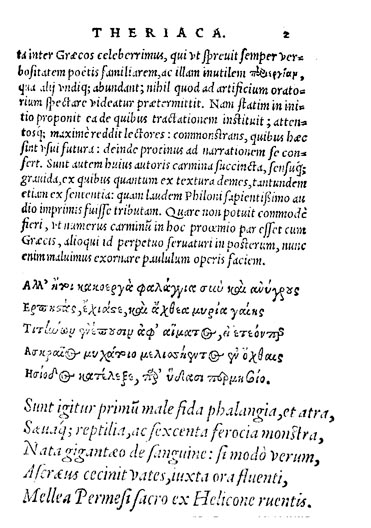 THERIACA. 2
ta inter Græcos celeberrimus, qui ut spreuit semper ver-
bositatem poëtis familiarem, ac illam inutilem
qua alij undiq; abundant; nihil quod ad artificium orato-
rium spectare videatur prætermittit. Nam statim in ini-
tio proponit ea de quibus tractationem instituit; atten-
tosq; maximè reddit lectores: commonstrans, quibus hæc
sint usui futura: deinde protinus ad narrationem se con-
fert. Sunt autem huius autoris carmina succincta, sensuq;
grauida, ex quibus quantum ex textura demes, tantundem
etiam ex sententia: quam laudem Philoni sapientißimo au
dio imprimis fuisse tributam. Quare non potuit commodè
fieri, ut numerus carminū in hoc proœmio par esset cum
Græcis, alioqui id perpetuo seruaturi in posterum, nunc
enim maluimus exornare paululum operis faciem.
Αλλ' ἤτοι κακοεργὰ φαλάγγια σιὼ καὶ ἀνιγροὺς
Ερπησὰς, ἔχιάς τε, καὶ ἄχθεα μυρία γαίης
Τιτlώων ἐνέπουσιν ἀφ' αἵματος, εἰ ἐτεόν περ
Ασκραῖος μυχάτοιο μελισσήεντος ἐπ' ὄχθαις
Ησίοδος κατέλεξε, παρ' ὕδασι περμησσοῖο.
Sunt igitur primū male fida phalangia, et atra,
Sæuaq; reptilia, ac sexcenta ferocia monstra,
Nata gigantæo de sanguine: si modò verum,
Ascræus cecinit vates, iuxta ora fluenti,
Mellea Permeßi sacro ex Helicone ruentis.